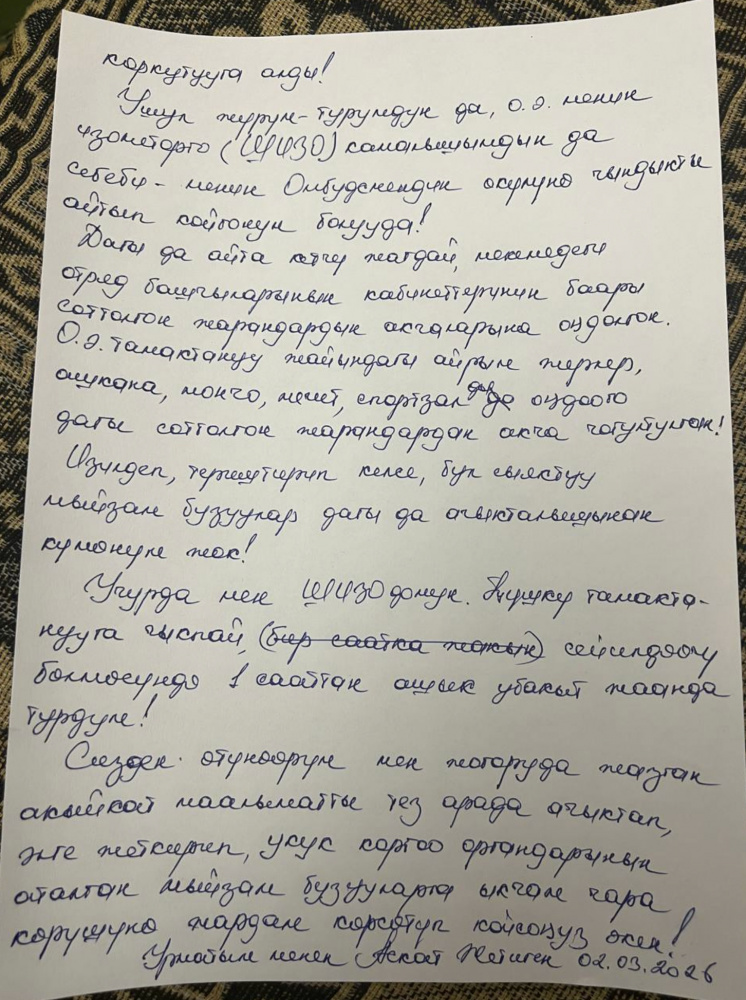 коркутууга алды!
Ушул жүрүм-турумдун да, о.э. менин
изоляторго (ШИЗО) камалышымдын да
себеби - менин Омбудсмендин өкүлүнө чындыкты
айтып койгонум болууда!
Дагы да айта кетчү жагдай, мекемедеги
отряд башчыларынын кабинеттеринин баары
соттолгон жарандардын акчаларына оңдолгон.
О.э. тамактануу жайындагы айрым жерлер,
ашкана, мончо, мечит, спортзалды оңдоого
дагы соттолгон жарандардан акча чогултулган!
Изилдеп, териштирип келсе, бул сыяктуу
мыйзам бузуулар дагы да ачыкталышынан
күмөнүм жок!
Учурда мен ШИЗОдомун. Түшкү тамакта-
нууга чыкпай, (бир саатка жакын) сейилдөөчү
бөлмөсүндө 1 сааттан ашык убакыт жаанда
турдум!
Сизден өтүнөөрүм мен жогоруда жазган
акыйкат маалыматты тез арада ачыктап,
элге жеткирип, укук коргоо органдарынын
аталган мыйзам бузууларга ыкчам чара
көрүшүнө жардам көрсөтүп койсоңуз экен!
Урматым менен Аскат Жетиген 02.03.2026